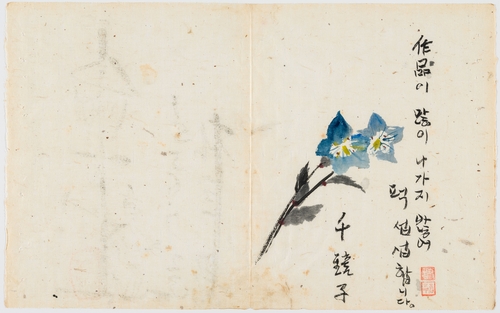 作品이 많이 나가지
퍽 섭섭합니다.
千鏡子